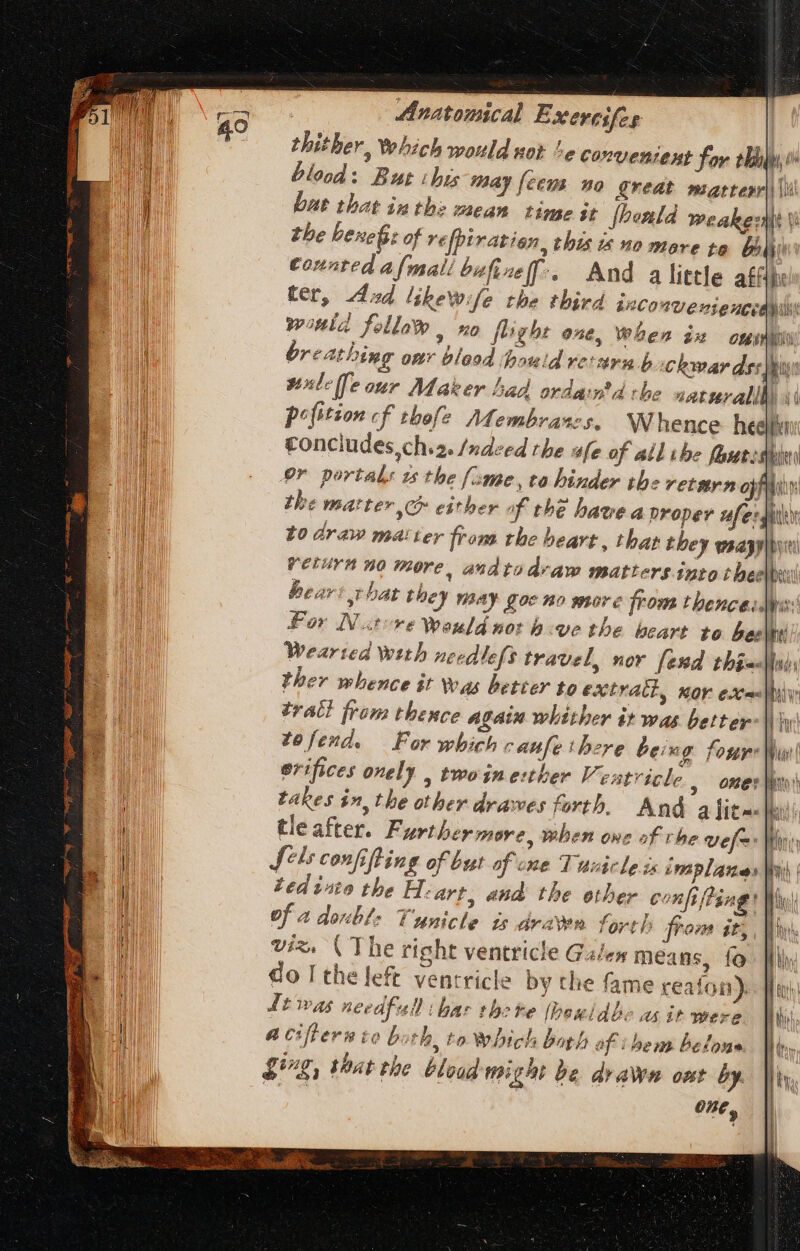 51
40
Anatomical Exercises
thither, which would not be convenient for the
blood: But this may seem no great matter:
but that in the mean time it should weaken
the benefit of respiration, this is no more to be
counted a small businesse. And a little af-
ter, And likewise the third inconvenience
would follow, no slight one, when in our
breathing our blood should return backwards,
unlesse our Maker had ordain'd the naturall
position of those Membranes. Whence hee
concludes, ch. 2. Indeed the use of all the
or portals is the same, to hinder the return of
the matter, & either of thē have a proper use,
to draw matter from the heart, that they may
return no more, and to draw matters into the
heart, that they may goe no more from thence.
For Nature would not have the heart to bee
wearied with needless travel, nor send thi-
ther whence it was better to extract, nor ex-
tract from thence again whither it was better
to send. For which cause there being four
orifices onely, two in either Ventricle, one
takes in, the other drawes forth. And a lit-
tle after. Furthermore, when one of the ves-
sels consisting of but of one Tunicle is implan-
ted into the Heart, and the other consisting
of a double Tunicle is drawn forth from it,
viz. (The right ventricle Galen means, so
do I the left ventricle by the same reason).
It was needfull that there should be as it were
a cistern to both, to which both of them belon-
ging, that the blood might be drawn out by
one,